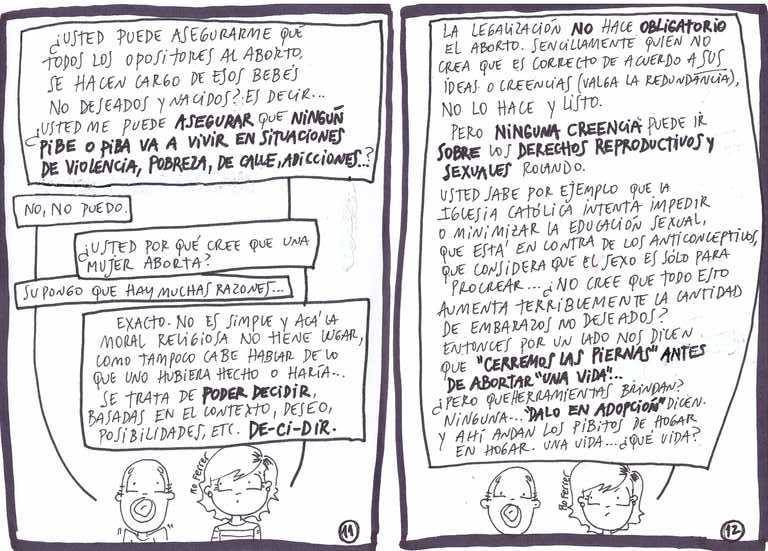 ¿USTED PUEDE ASEGURARME QUE
TODOS LOS OPOSITORES AL ABORTO,
SE HACEN CARGO DE ESOS BEBÉS
NO DESEADOS Y NACIDOS? ES DECIR...
¿USTED ME PUEDE ASEGURAR QUE NINGUÑ
PIBE O PIBA VA A VIVIR EN SITUACIONES
DE VIOLENCIA, POBREZA, DE CALLE, ADICCIONES..?
NO, NO PUEDO.
¿USTED POR QUÉ CREE QUE UNA
MUJER ABORTA?
SUPONGO QUE HAY MUCHAS RAZONES...
EXACTO. NO ES SIMPLE Y ACÁ LA
MORAL RELIGIOSA NO TIENE LUGAR,
COMO TAMPOCO CABE HABLAR DE LO
QUE UNO HUBIERA HECHO O HARÍA...
SE TRATA DE PODER DECIDIR,
BASADAS EN EL CONTEXTO, DESEO,
POSIBILIDADES, ETC. DE-CI-DIR.
Ro Ferrer
11
LA LEGALIZACIÓN NO HACE OBLIGATORIO
EL ABORTO. SENCILLAMENTE QUIEN NO
CREA QUE ES CORRECTO DE ACUERDO A SUS
IDEAS O CREENCIAS (VALGA LA REDUNDANCIA),
NO LO HACE Y LISTO.
PERO NINGUNA CREENCIA PUEDE IR
SOBRE LOS DERECHOS REPRODUCTIVOS Y
SEXUALES ROLANDO.
USTED SABE POR EJEMPLO QUE LA
IGLESIA CATÓLICA INTENTA IMPEDIR
O MINIMIZAR LA EDUCACIÓN SEXUAL,
QUE ESTÁ EN CONTRA DE LOS ANTICONCEPTIVOS,
QUE CONSIDERA QUE EL SEXO ES SÓLO PARA
PROCREAR... ¿NO CREE QUE TODO ESTO
AUMENTA TERRIBLEMENTE LA CANTIDAD
DE EMBARAZOS NO DESEADOS?
ENTONCES POR UN LADO NOS DICEN
QUE "CERREMOS LAS PIERNAS" ANTES
DE ABORTAR "UNA VIDA"...
¿PERO QUE HERRAMIENTAS BRINDAN?
NINGUNA... "DALO EN ADOPCIÓN" DICEN.
Y AHÍ ANDAN LOS PIBITOS DE HOGAR
EN HOGAR. UNA VIDA... ¿QUÉ VIDA?
Ro Ferrer
12